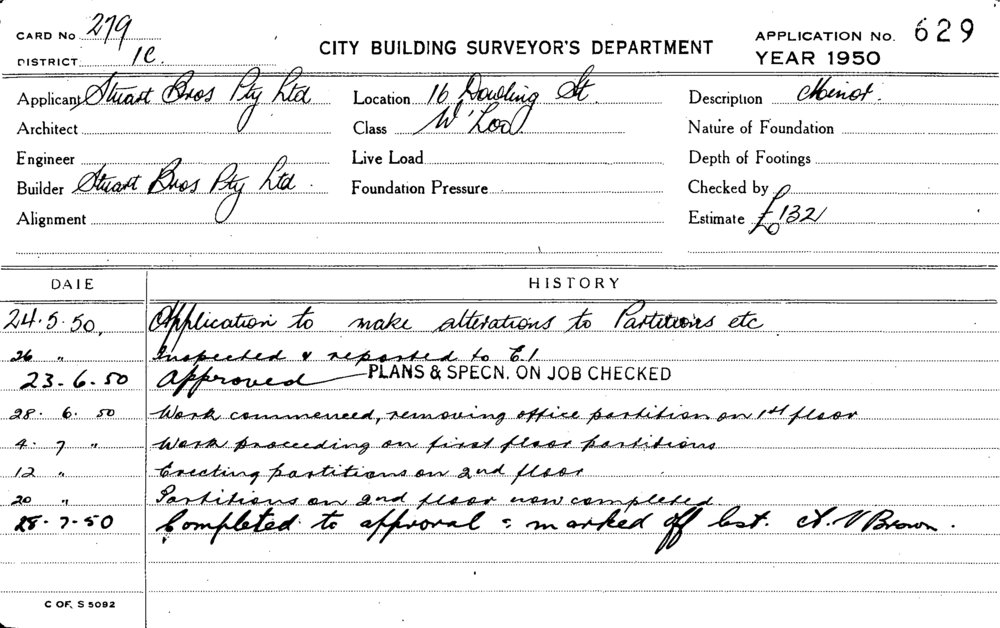 CARD No 279
DISTRICT 1C.
CITY BUILDING SURVEYOR'S DEPARTMENT
APPLICATION No. 629
YEAR 1950
Applicant Stuart Bros Pty Ltd Location 16 Dowling St. Description Minor.
Architect Class W'Loo Nature of Foundation
Engineer Live Load Depth of Footings
Builder Stuart Bros Pty Ltd. Foundation Pressure Checked by
Alignment Estimate £132
DATE HISTORY
24.5.50. Application to make alterations to Partitions etc
26 " Inspected & reported to E.I.
23.6.50 Approved PLANS & SPECN. ON JOB CHECKED
28. 6. 50 Work commenced, removing office partition on 1st floor
4. 7 " Work proceeding on first floor partitions
12 " Erecting partitions on 2nd floor
20 " Partitions on 2nd floor now completed
28.7.50 Completed to approval = marked off list. A. V Brown.
C OF. S 5092